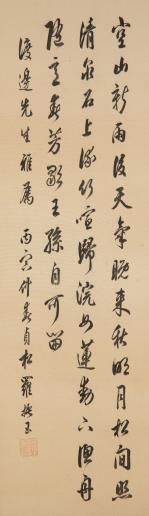 空山新雨後天氣晚來秋明月松間照
清泉石上流竹喧歸浣女蓮動下漁舟
隨意春芳歇王孫自可留
渡邊先生雅屬 丙寅仲春貞松羅振玉